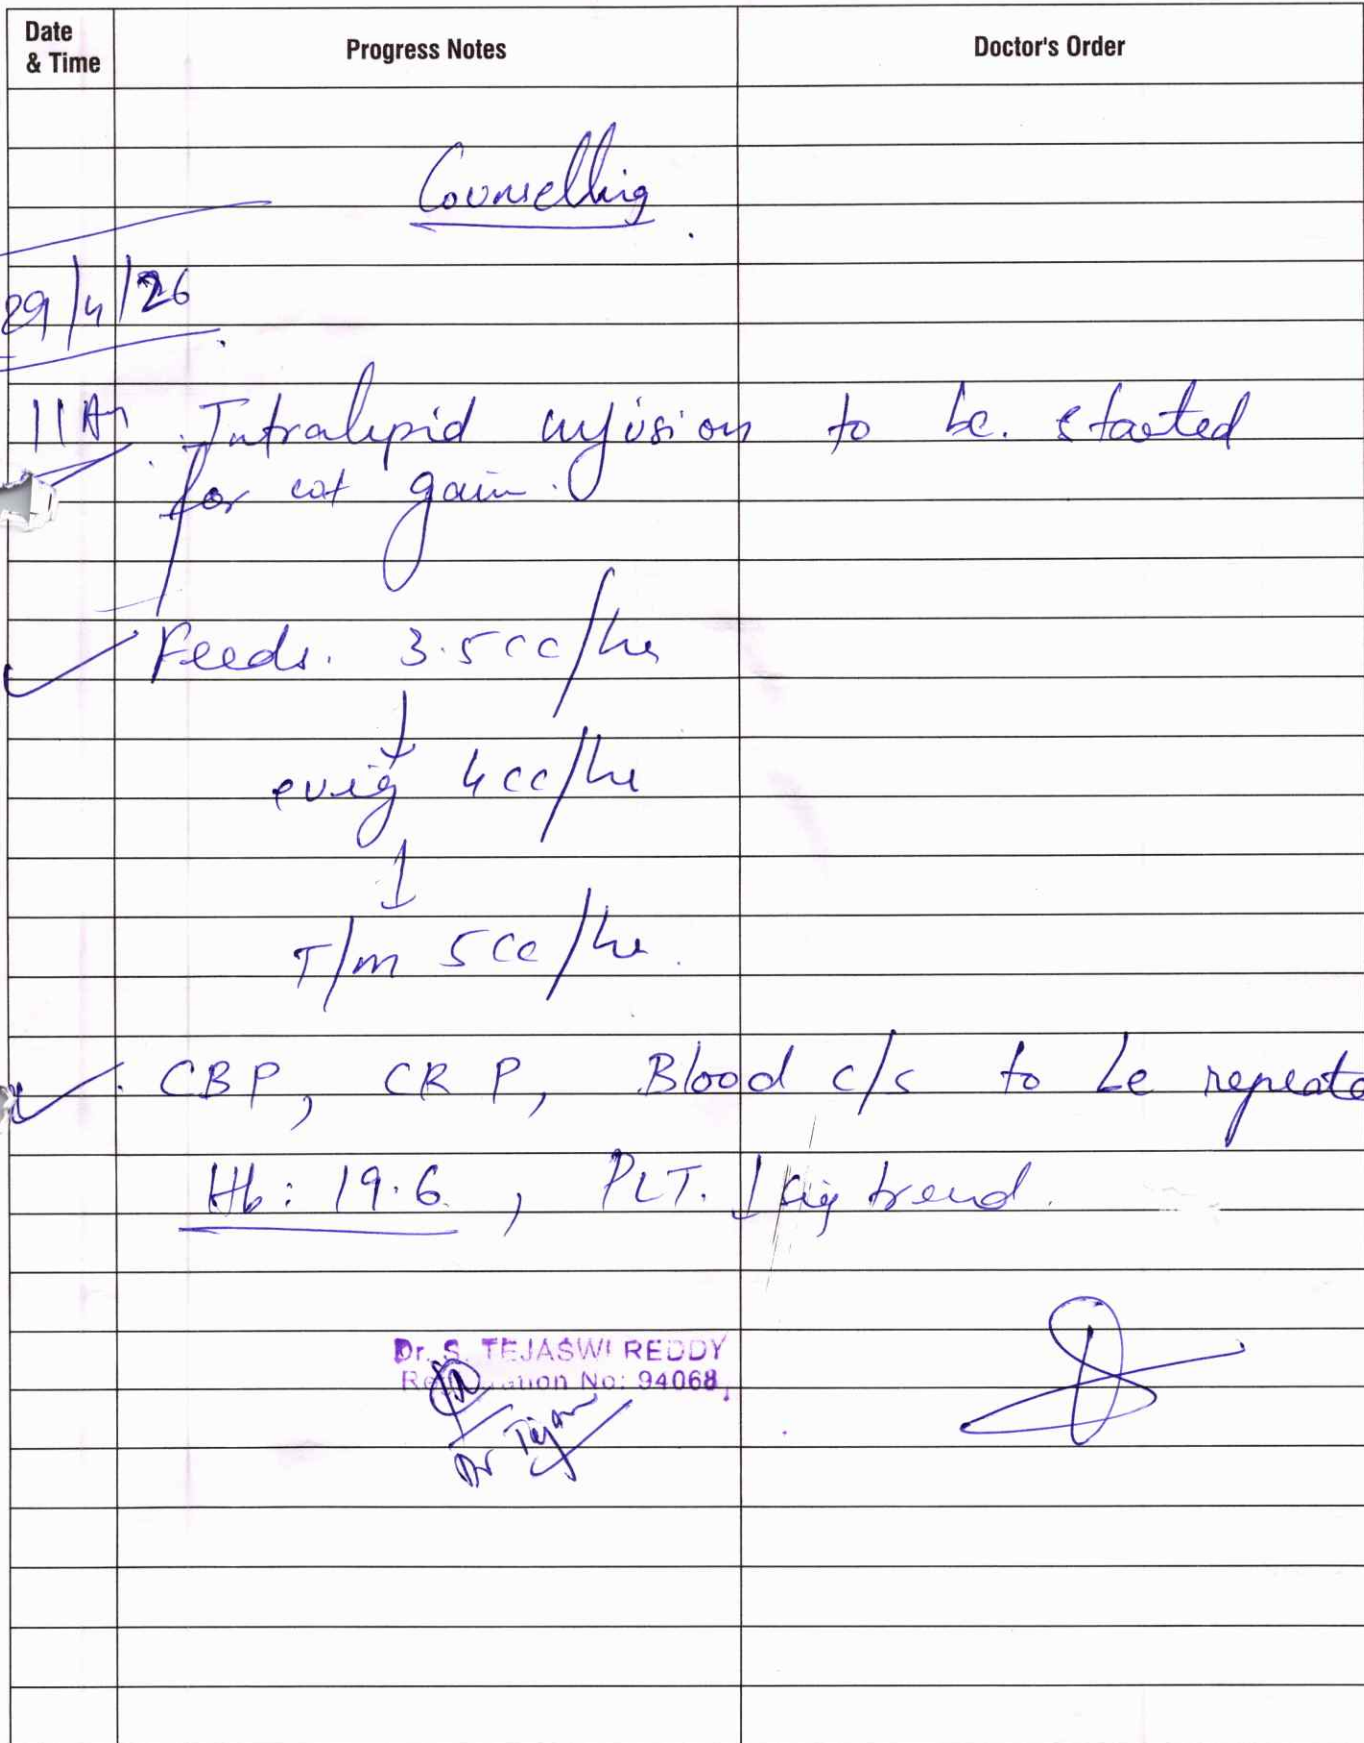 Date & Time Progress Notes Doctor's Order
Counselling
29/4/26
11Am Intralipid infusion to be. started
for wt gain.
Feeds. 3.5cc/hr
↓
evig 4cc/hr
↓
T/m 5cc/hr.
CBP, CRP, Blood c/s to be repeate
Hb: 19.6, PLT. ↓ trend.
Dr. S. TEJASWI REDDY
No: 94068
Dr